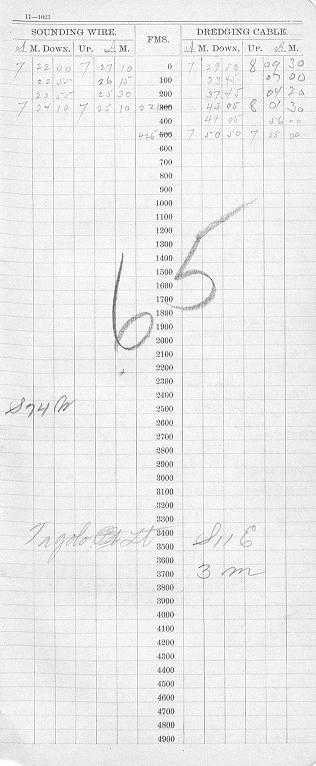 11—1023
SOUNDING WIRE. FMS. DREDGING CABLE.
A. M. DOWN. UP. A. M. A. M. DOWN. UP. A. M.
7 22 00 7 27 10 0 7 29 50 8 09 30
22 55 26 15 100 33 45 07 00
23 55 25 30 200 37 45 04 20
7 24 10 7 25 10 300 43 05 8 01 30
400 47 05 56 00
500 7 50 50 7 55 00
600
700
800
900
1000
1100
1200
1300
1400
1500
1600
1700
1800
1900
2000
2100
2200
2300
2400
2500
2600
2700
2800
2900
3000
3100
3200
3300
3400
3500
3600
3700
3800
3900
4000
4100
4200
4300
4400
4500
4600
4700
4800
4900
65
S 74 W
Ingolo Pt Lt S 11 E
3 m